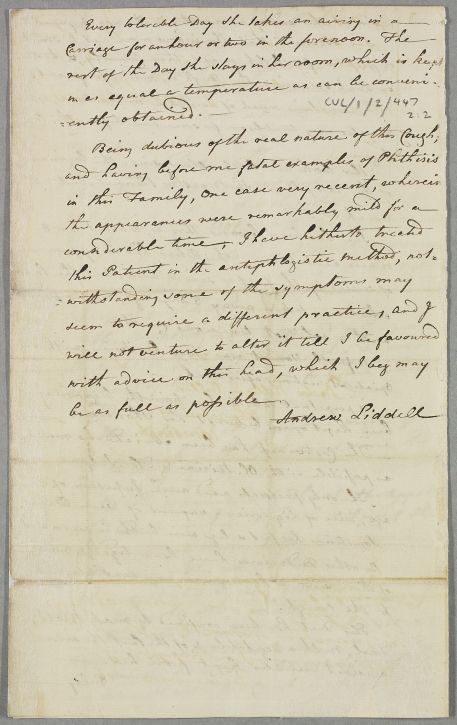 Every tolerable Day she takes an airing in a
Carriage for an hour or two in the forenoon. The
rest of the Day she stays in her room, which is kept
in as equal a temperature as can be conveni-
=ently obtained. —
CUL/1/2/447
2:2
Being dubious of the real nature of this Cough,
and having before me fatal examples of Phthisis
in this Family, One case very recent, wherein
the appearances were remarkably mild for a
considerable time, I have hitherto treated
this Patient in the antiphlogistic method, not=
=withstanding some of the symptoms may
seem to require a different practice, and I
will not venture to alter it till I be favoured
with advice on this head, which I beg may
be as full as possible
Andrew Liddell